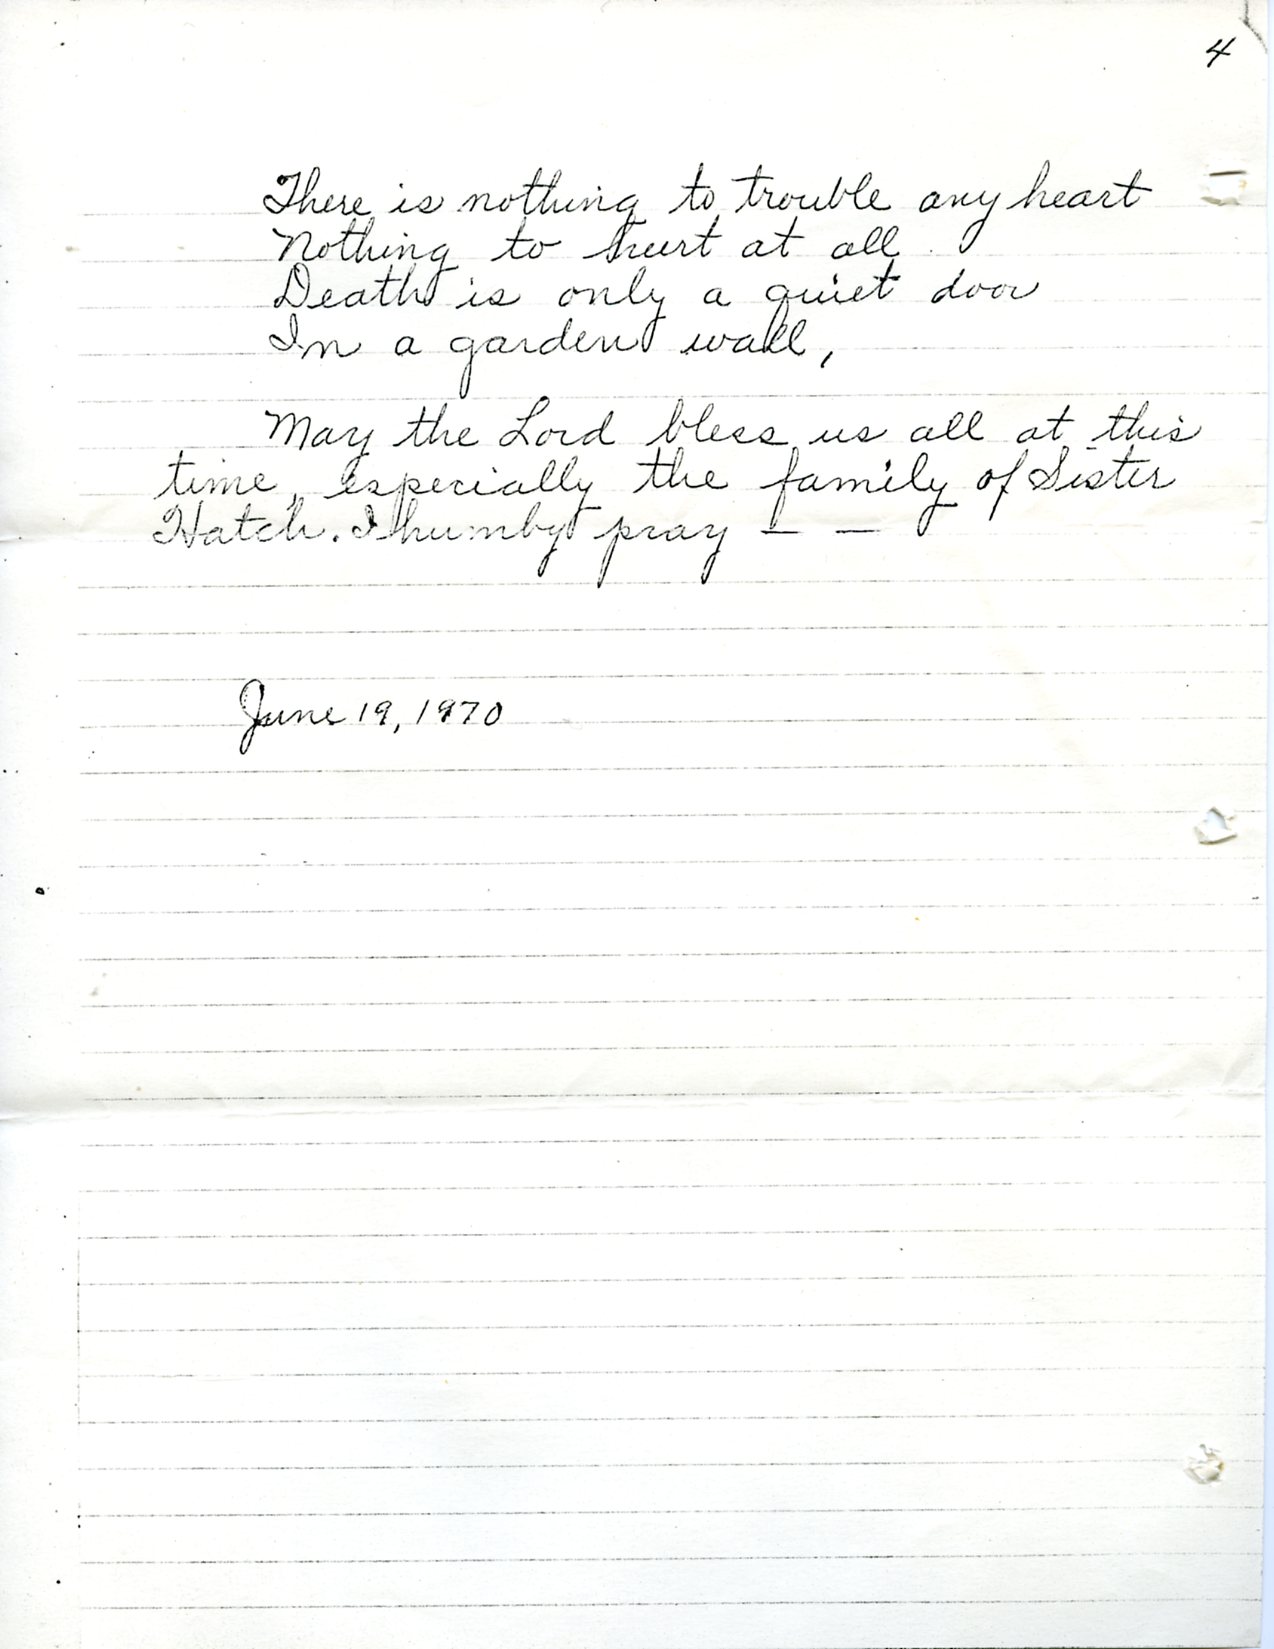 4
There is nothing to trouble any heart
Nothing to hurt at all.
Death is only a quiet door
In a garden wall,
May the Lord bless us all at this
time, especially the family of Sister
Hatch. I humby pray – –
June 19, 1970